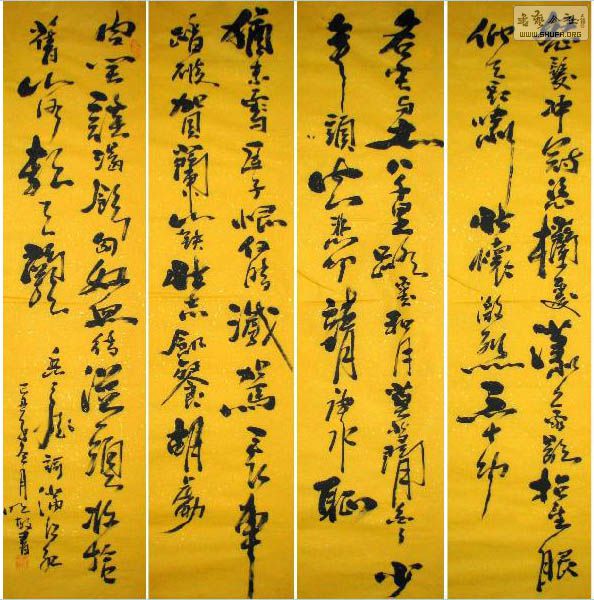 書藝公社
WWW.SHUFA.ORG
怒髮冲冠憑欄處瀟瀟雨歇抬望眼
仰天長嘯壯懷激烈三十功
名塵與土八千里路雲和月莫等閒白了少
年頭空悲切靖康恥
猶未雪臣子恨何時滅駕長車
踏破賀蘭山缺壯志飢餐胡虜
肉笑談渴飲匈奴血待從頭收拾
舊山河朝天闕
岳飛詞滿江紅